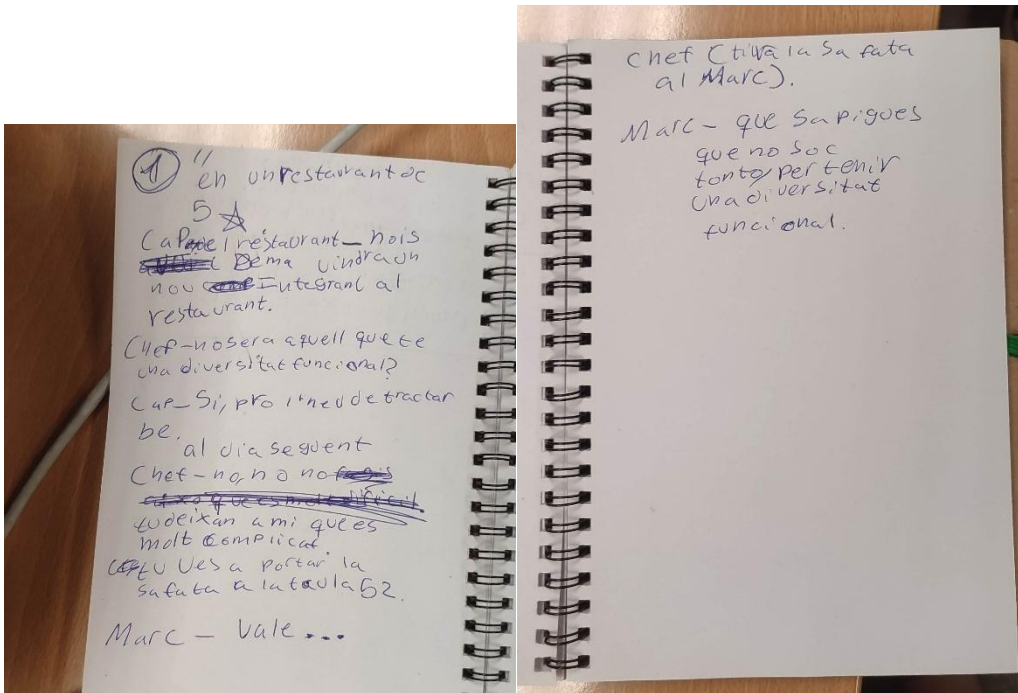 1 "en un restaurant de
5 ☆
Cap del restaurant_ nois
Dema vindra un
nou Integrant al
restaurant.
Chef-no sera aquell que te
una diversitat funcional?
Cap_Si, pro l'heu de tractar
be.
al dia seguent
Chef-no, no no fagis
aixo que es molt dificil
tu deixan a mi que es
molt complicat.
tu ves a portar la
safata a la taula 52.
Marc - Vale...
chef (tira la safata
al Marc).
Marc- que sapigues
que no soc
tonto, per tenir
una diversitat
funcional.